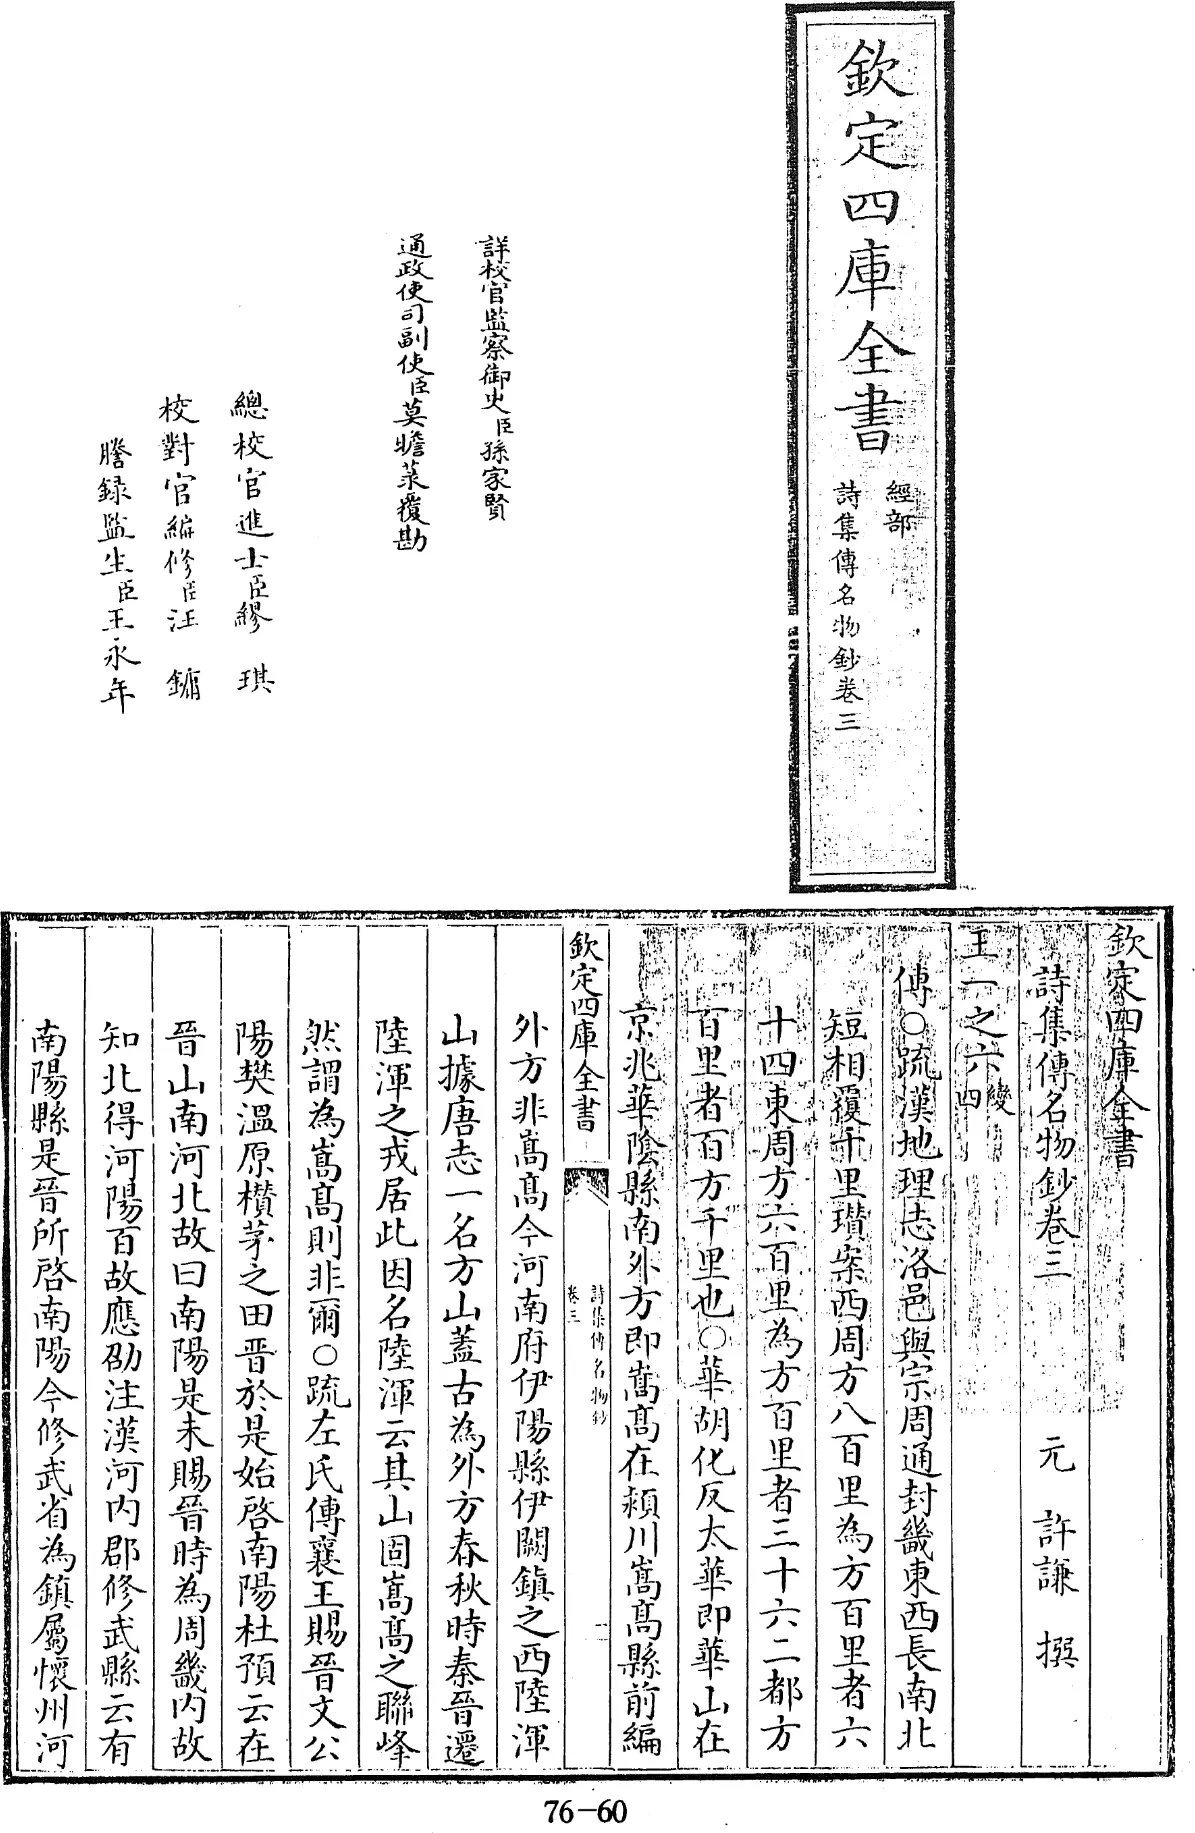 欽定四庫全書
經部
詩集傳名物鈔卷三
詳校官監察御史臣孫家賢
通政使司副使臣莫瞻菉覆勘
總校官進士臣繆琪
校對官編修臣汪鏞
謄録監生臣王永年
欽定四庫全書
詩集傳名物鈔卷三
元 許謙 撰
王一之六變四
傳○疏漢地理志洛邑與宗周通封畿東西長南北
短相覆千里瓚案西周方八百里為方百里者六
十四東周方六百里為方百里者三十六二都方
百里者百方千里也○華胡化反太華即華山在
京兆華陰縣南外方即嵩髙在潁川嵩髙縣前編
欽定四庫全書
詩集傳名物鈔
卷三
一
外方非嵩髙今河南府伊陽縣伊闕鎮之西陸渾
山據唐志一名方山蓋古為外方春秋時秦晉遷
陸渾之戎居此因名陸渾云其山固嵩髙之聯峰
然謂為嵩髙則非爾○疏左氏傳襄王賜晉文公
陽樊溫原欑茅之田晋於是始啓南陽杜預云在
晉山南河北故曰南陽是未賜晉時為周畿内故
知北得河陽百故應劭注漢河内郡修武縣云有
南陽縣是晉所啓南陽今修武省為鎮屬懷州河
76-60